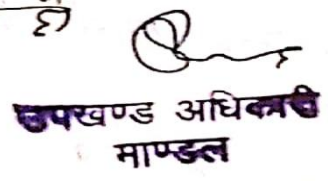 उपखण्ड अधिकारी
माण्डल